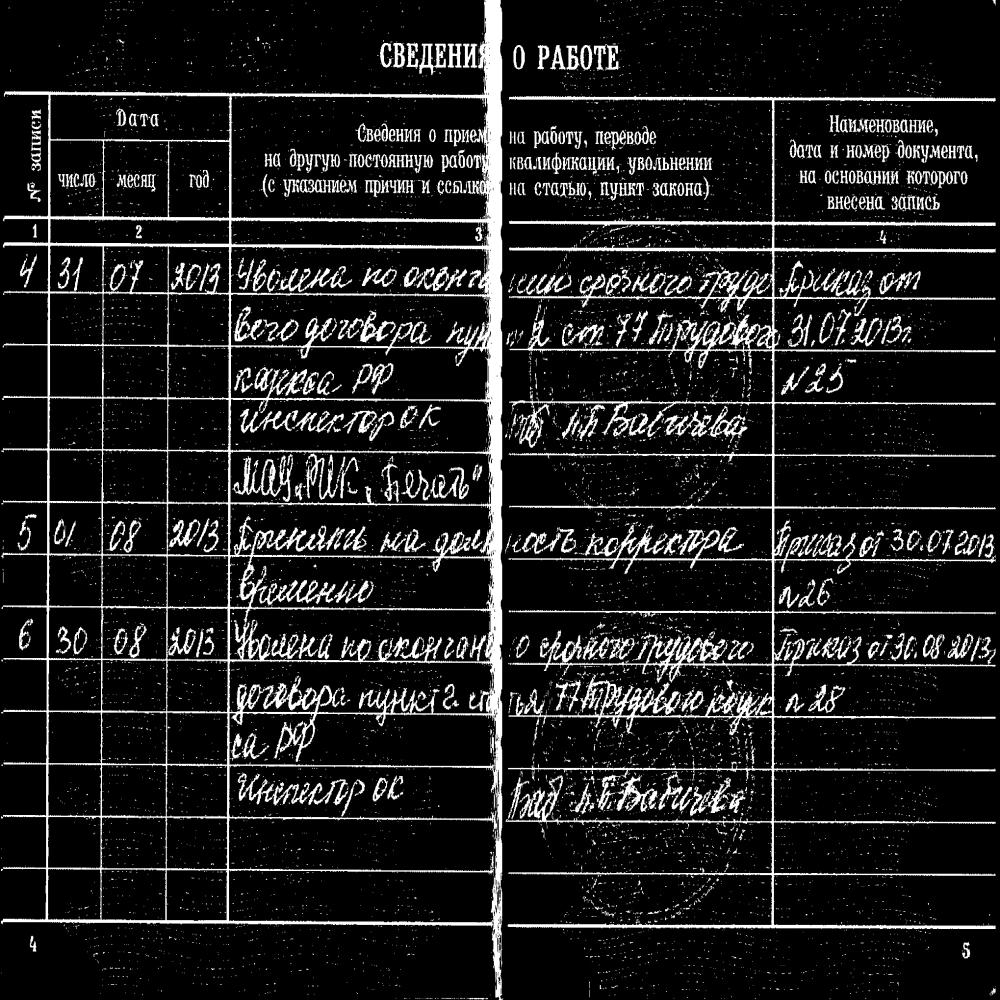 СВЕДЕНИЯ О РАБОТЕ
№ записи
Дата
число месяц год
Сведения о приеме на работу, переводе
на другую постоянную работу, квалификации, увольнении
(с указанием причин и ссылкой на статью, пункт закона)
Наименование,
дата и номер документа,
на основании которого
внесена запись
1 2 3 4
4 31 07 2013 Уволена по окончанию срочного трудо Приказ от
вого договора пункт 2 ст 77 Трудового 31.07.2013г.
кодекса РФ N25
инспектор ОК Л.Г. Бабичева
МАУ „РИК „Печать"
5 01 08 2013 Принята на должность корректора Приказ от 30.07.2013
временно n26
6 30 08 2013 Уволена по окончанию срочного трудового Приказ от 30.08.2013г
договора пункт 2 статья 77 Трудового кодек n 28
са РФ
Инспектор ОК Баб Бабичева
4 5